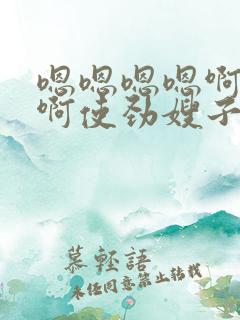 嗯嗯嗯嗯啊
啊使劲嫂子
慕轻語
未经同意禁止转载